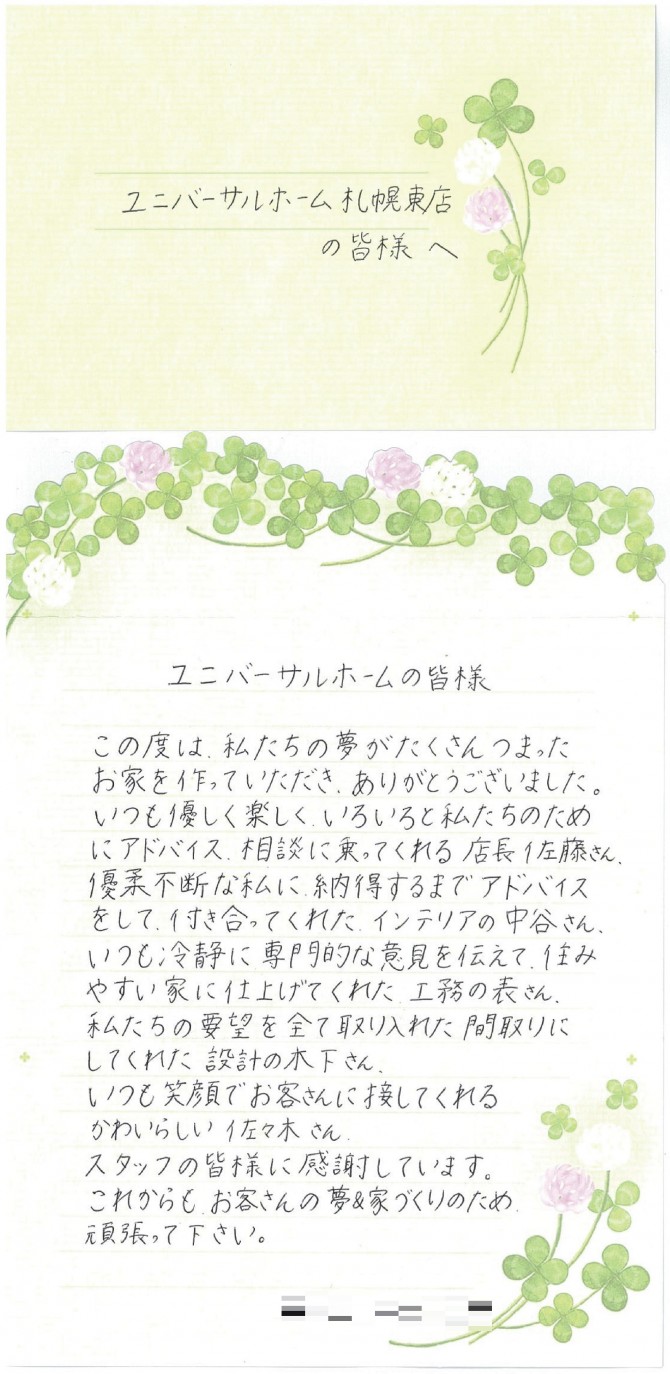 ユニバーサルホーム札幌東店
の皆様へ
ユニバーサルホームの皆様
この度は、私たちの夢がたくさんつまった
お家を作っていただき、ありがとうございました。
いつも優しく楽しく、いろいろと私たちのため
にアドバイス、相談に乗ってくれる店長佐藤さん、
優柔不断な私に、納得するまでアドバイス
をして、付き合ってくれた、インテリアの中谷さん、
いつも冷静に専門的な意見を伝えて、住み
やすい家に仕上げてくれた、工務の表さん、
私たちの要望を全て取り入れた間取りに
してくれた設計の木下さん、
いつも笑顔でお客さんに接してくれる
かわいらしい佐々木さん、
スタッフの皆様に感謝しています。
これからも、お客さんの夢&家づくりのため、
頑張って下さい。